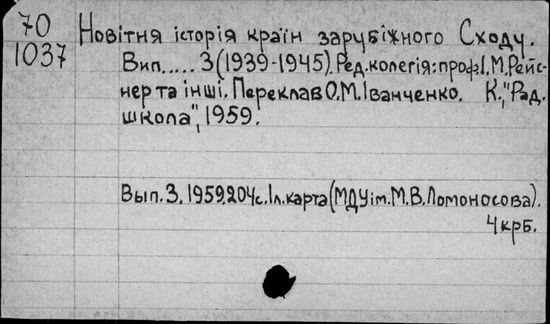 70
1037
Новітня історія країн зарубіжного Сходу.
Вип..... 3(1939-1945). Ред.колегія: проф.І.М.Рейс-
нер та інші. Переклав О.М.Іванченко. К., "Рад.
школа", 1959.
Вып. 3. 1959.204с. Іл.карта (МДУ ім. М.В.Ломоносова).
4 крб.